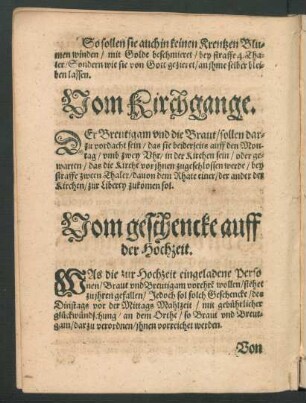 So sollen sie auch in keinen Krentzen Blu-
men winden / mit Golde beschmieret / bey straffe 4. Tha-
ler / Sondern wie sie von Gott gezieret / an jhme selber blei-
ben lassen.
Vom Kirchgange.
DEr Breutigam vnd die Braut / sollen dar-
zu vordacht sein / das sie beiderseits auff den Mon-
tag / vmb zwey Vhr / in der Kirchen sein / oder ge-
warten / das die Kirche vor jhnen zugeschlossen werde / bey
straffe zween Thaler / dauon dem Rhate einer / der ander der
Kirchen / zur Liberey zukomen sol.
Vom geschencke auff
der Hochzeit.
WAs die zur Hochzeit eingeladene Perso
nen / Braut vnd Breutigam vorehrt wollen / stehet
zu jhren gefallen / Jedoch sol solch Geschencke / des
Dinstags vor der Mittags Mahlzeit / mit gebührlicher
glückwündschung / an dem Orthe / so Braut vnd Breut-
gam / darzu verordnen / jhnen vorreichet werden.
Von